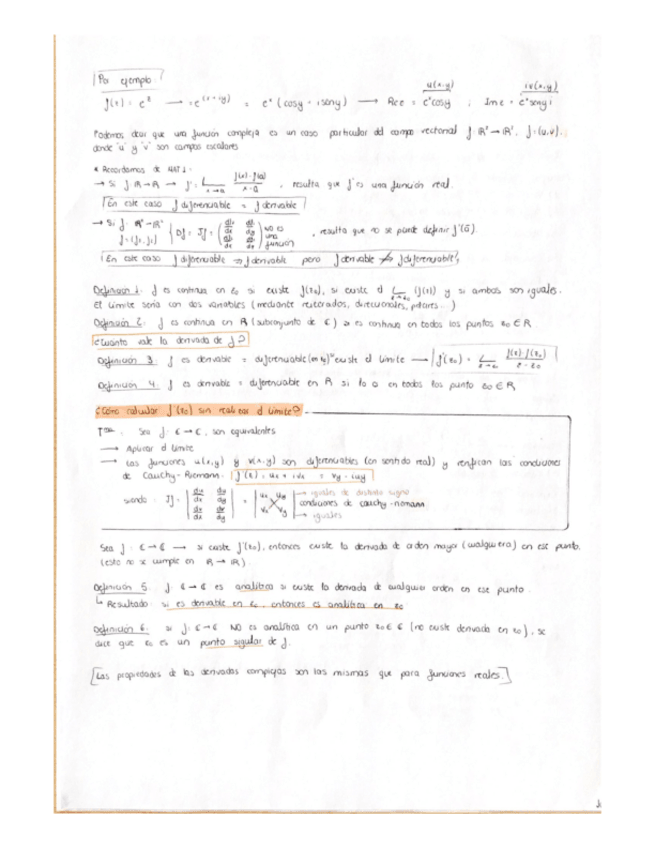 Por ejemplo:
u(x,y) iv(x,y)
f(z) = e^z → = e^(x+iy) = e^x (cosy + iseny) → Re e = e^x cosy ; Im e = e^x seny i
Podemos decir que una función compleja es un caso particular del campo vectorial f: R² → R², f = (u,v).
donde 'u' y 'v' son campos escalares
* Recordamos de MAT I:
→ Si f: R → R → f' = L x→a f(x) - f(a) / x - a , resulta que f' es una función real.
En este caso f diferenciable = f derivable
→ Si f: R² → R²
f = (f1, f2) Df = Jf = (du/dx du/dy dv/dx dv/dy) NO ES una función , resulta que no se puede definir f'(a).
En este caso f diferenciable ⇒ f derivable pero f derivable ⇏ f diferenciable
Definición 1. f es continua en z0 si existe f(z0), si existe el L z→z0 (f(z)) y si ambos son iguales.
El límite sería con dos variables (mediante reiterados, direccionales, polares...)
Definición 2. f es continua en R (subconjunto de C) si es continua en todos los puntos z0 ∈ R.
¿Cuánto vale la derivada de f?
Definición 3. f es derivable = diferenciable (en z0) si existe el límite → f'(z0) = L z→z0 f(z) - f(z0) / z - z0
Definición 4. f es derivable = diferenciable en R si lo es en todos los punto z0 ∈ R
¿Cómo calcular f'(z0) sin realizar el límite?
Tma. Sea f: C → C, son equivalentes
→ Aplicar el límite
→ Las funciones u(x,y) y v(x,y) son diferenciables (en sentido real) y verifican las condiciones
de Cauchy-Riemann. f'(z) = ux + ivx = vy - iuy
siendo Jf = | du/dx du/dy dv/dx dv/dy | = | ux uy vx vy | → iguales de distinto signo
condiciones de cauchy-riemann
→ iguales
Sea f: C → C → si existe f'(z0), entonces existe la derivada de orden mayor (cualquiera) en ese punto.
(esto no se cumple en R → R).
Definición 5. f: C → C es analítica si existe la derivada de cualquier orden en ese punto.
↳ Resultado: si es derivable en z0, entonces es analítica en z0
Definición 6. si f: C → C NO es analítica en un punto z0 ∈ C (no existe derivada en z0), se
dice que z0 es un punto sigular de f.
[Las propiedades de las derivadas complejas son las mismas que para funciones reales.]